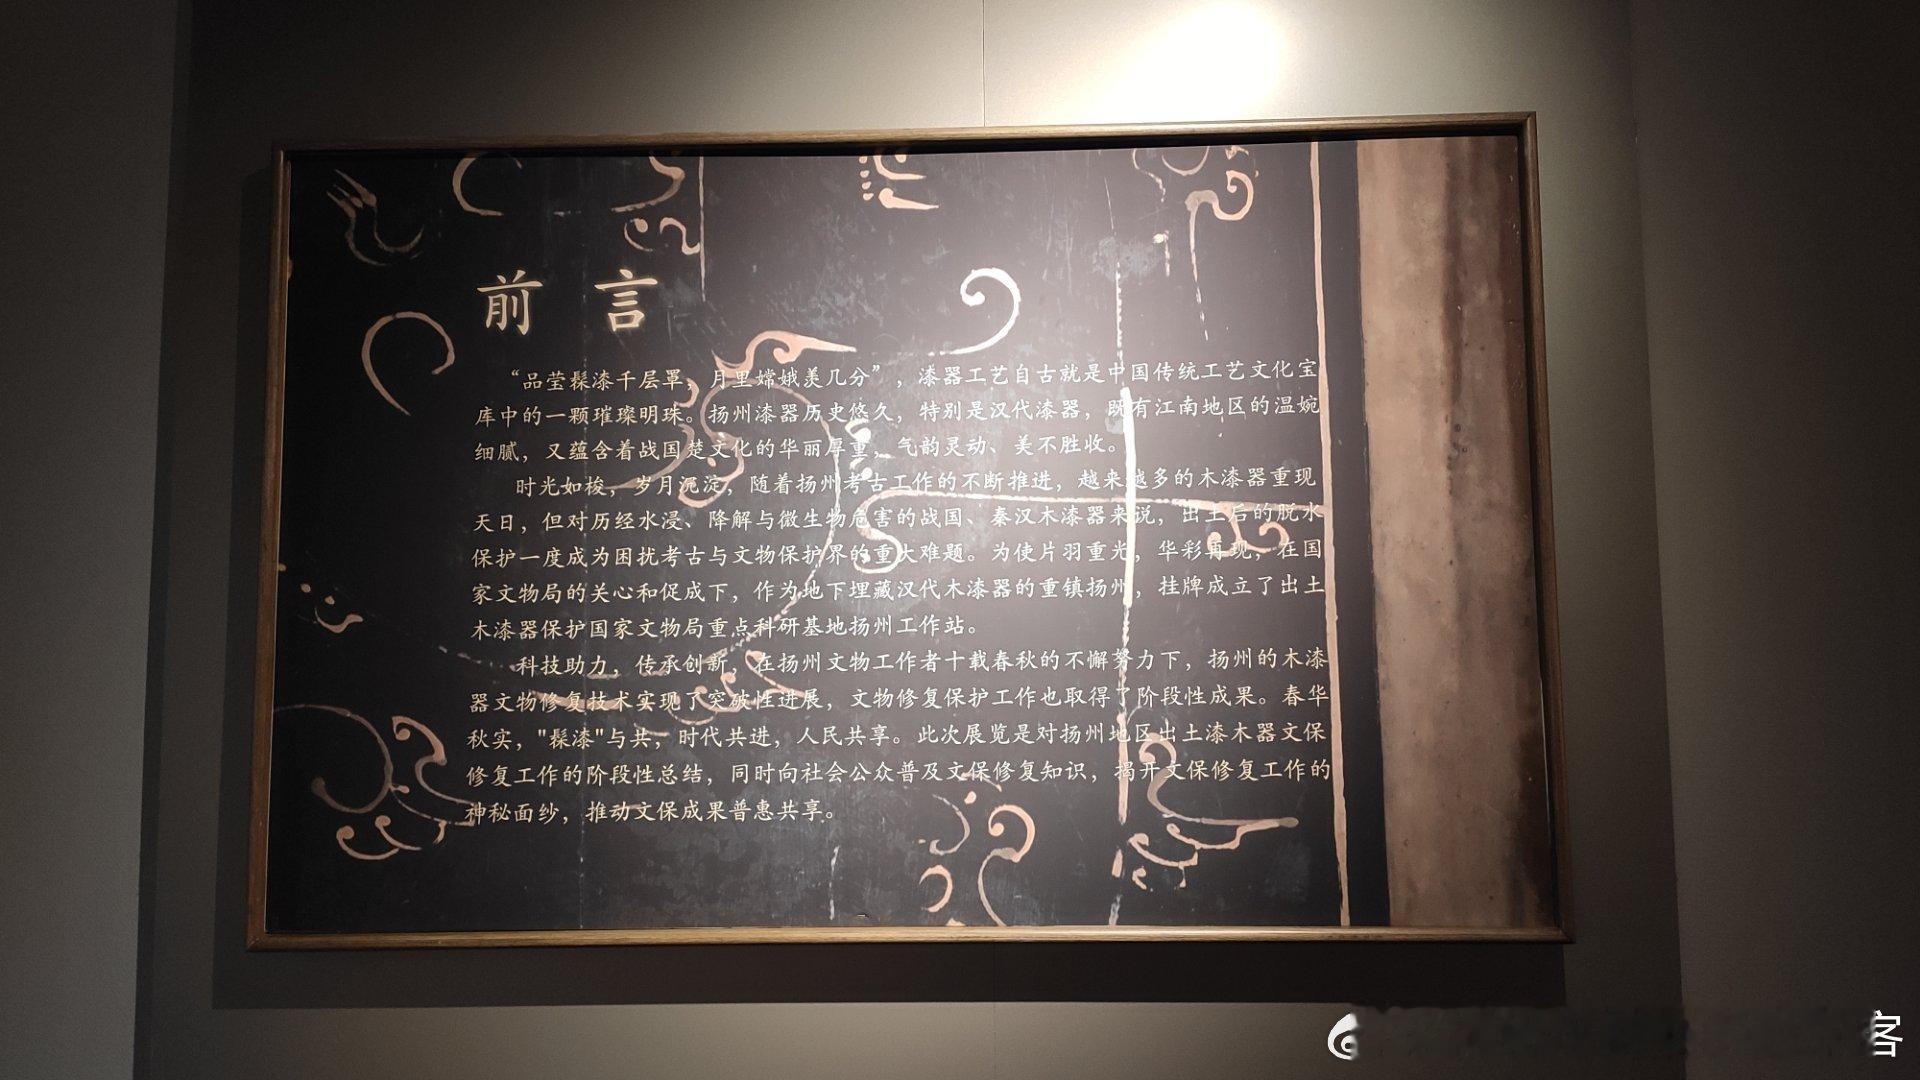 前言
“品莹髹漆千层罩，月里嫦娥羡几分”，漆器工艺自古就是中国传统工艺文化宝
库中的一颗璀璨明珠。扬州漆器历史悠久，特别是汉代漆器，既有江南地区的温婉
细腻，又蕴含着战国楚文化的华丽厚重，气韵灵动、美不胜收。
时光如梭，岁月沉淀，随着扬州考古工作的不断推进，越来越多的木漆器重现
天日，但对历经水浸、降解与微生物危害的战国、秦汉木漆器来说，出土后的脱水
保护一度成为困扰考古与文物保护界的重大难题。为使片羽重光，华彩再现，在国
家文物局的关心和促成下，作为地下埋藏汉代木漆器的重镇扬州，挂牌成立了出土
木漆器保护国家文物局重点科研基地扬州工作站。
科技助力，传承创新，在扬州文物工作者十载春秋的不懈努力下，扬州的木漆
器文物修复技术实现了突破性进展，文物修复保护工作也取得了阶段性成果。春华
秋实，"髹漆"与共，时代共进，人民共享。此次展览是对扬州地区出土漆木器文保
修复工作的阶段性总结，同时向社会公众普及文保修复知识，揭开文保修复工作的
神秘面纱，推动文保成果普惠共享。
客